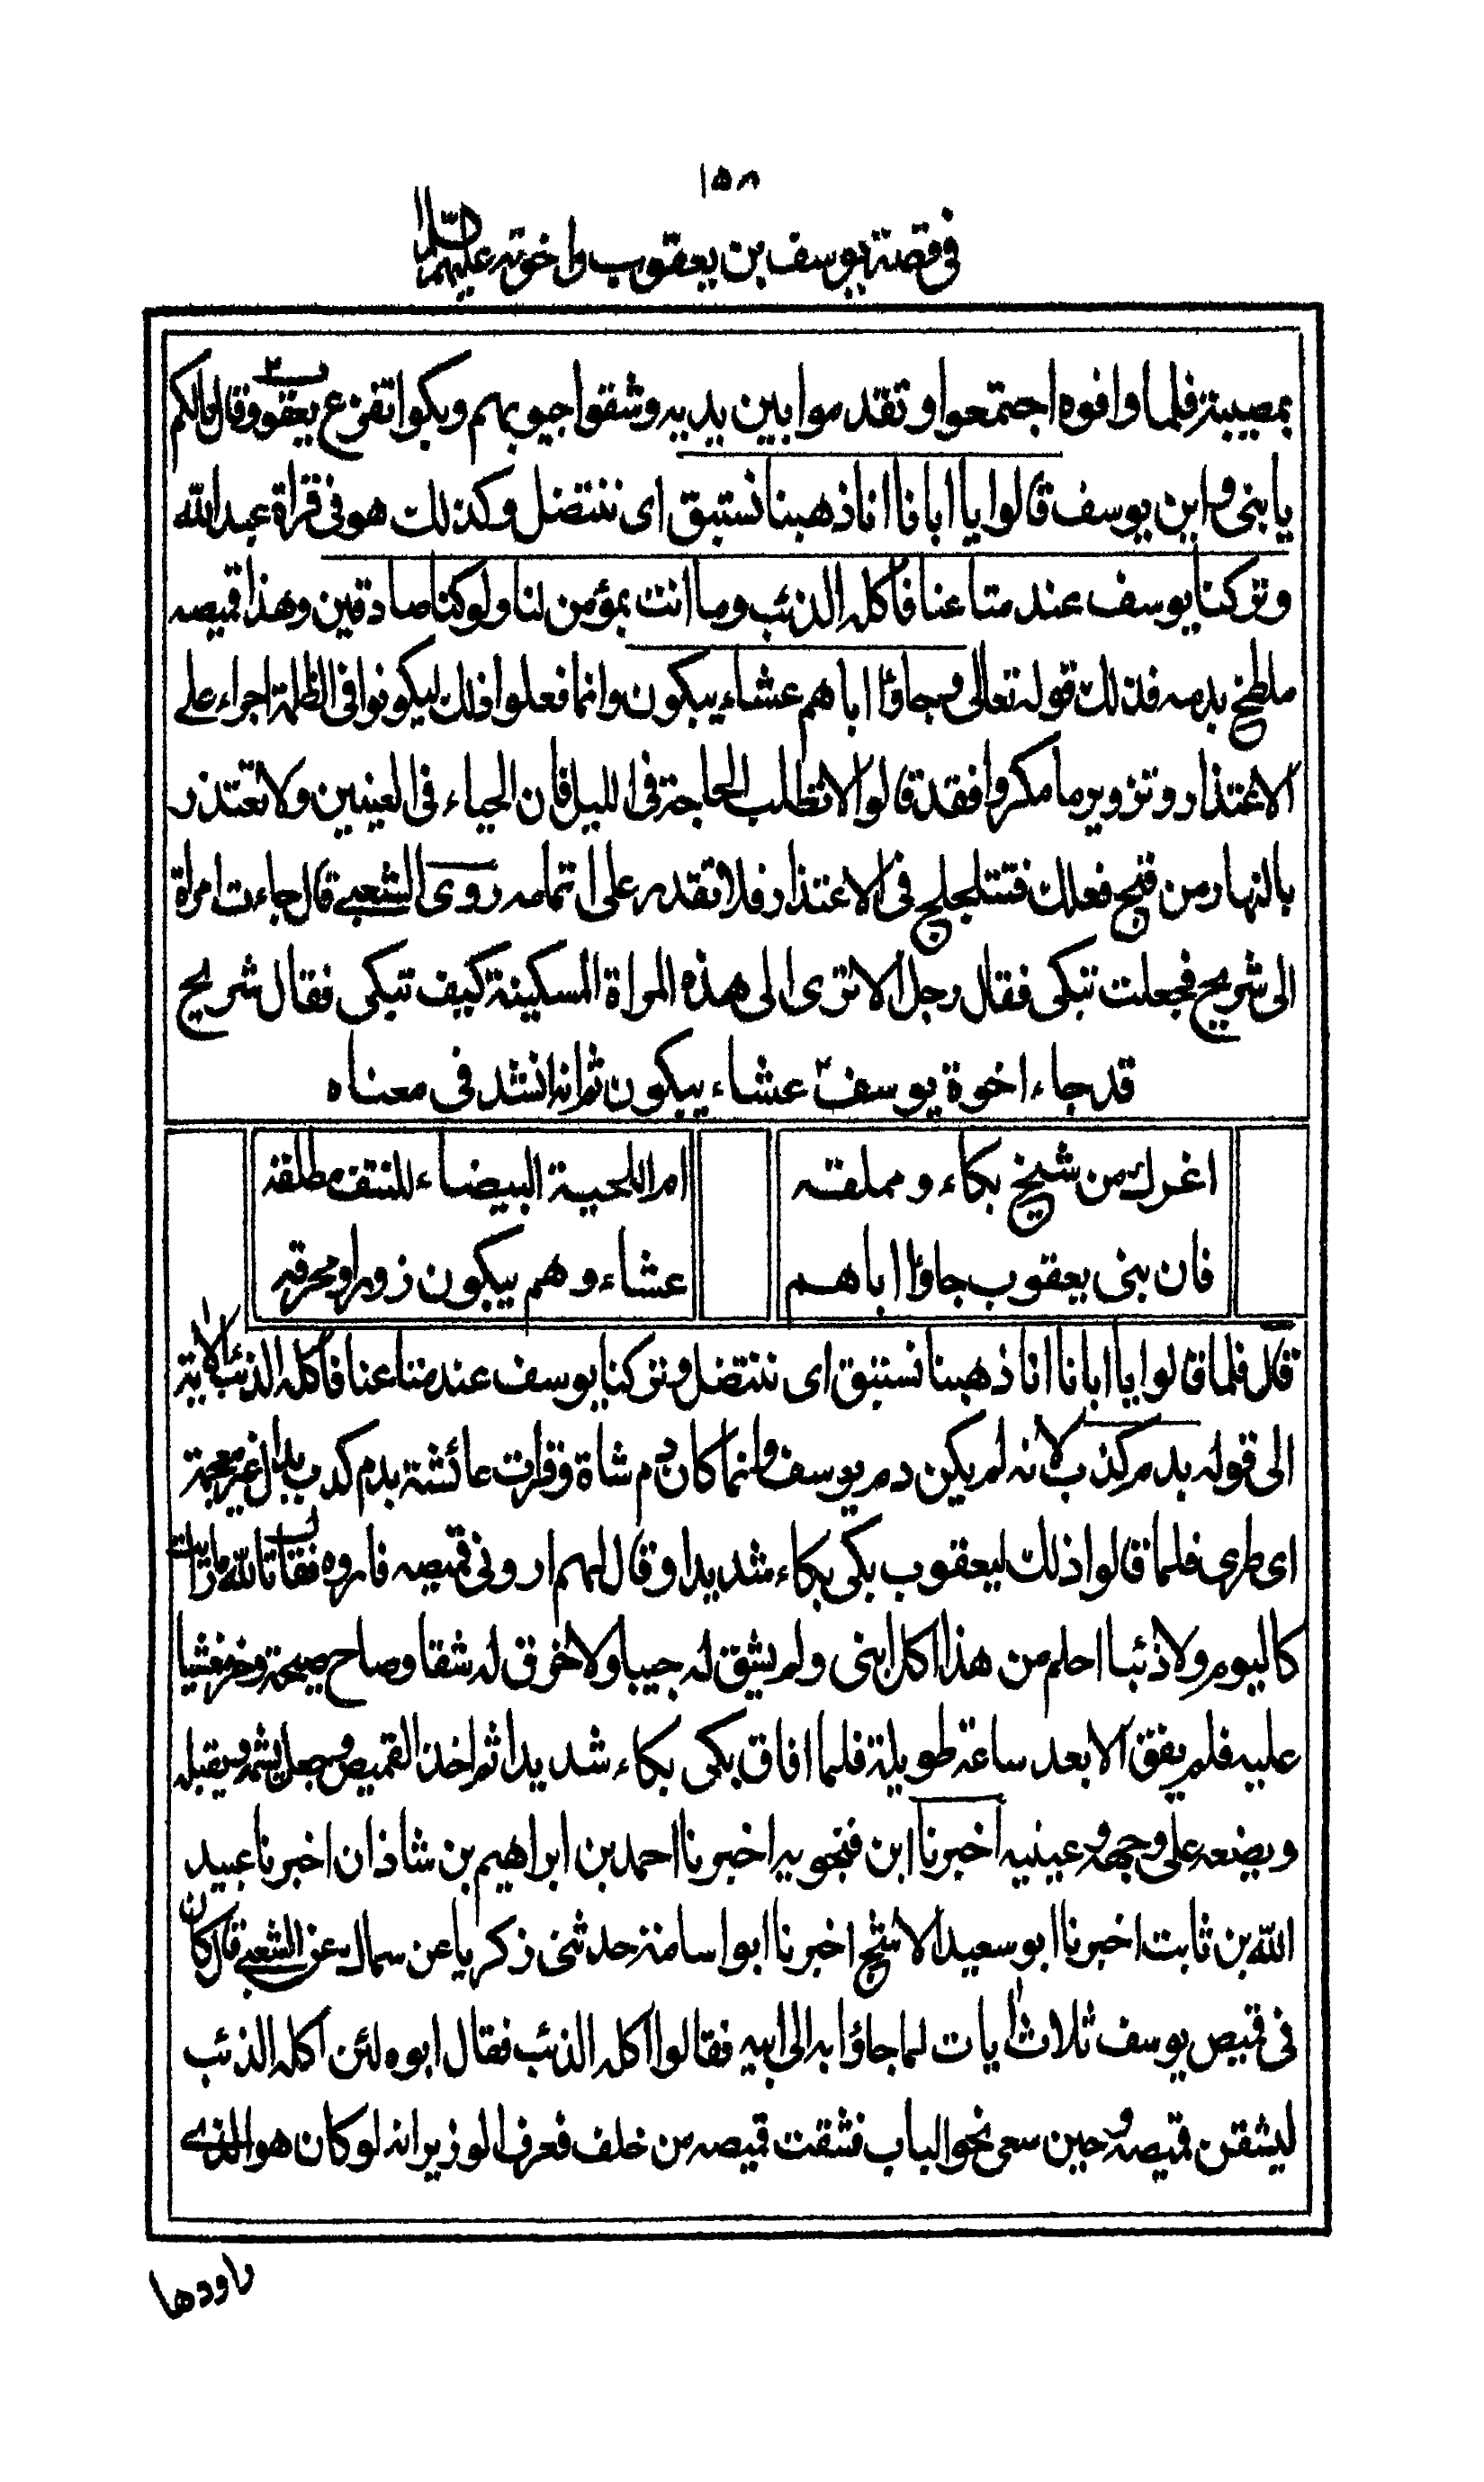 ١٥٨
في قصة يوسف بن يعقوب واخوته عليهم السلام
بمصيبة فلما وافوه اجتمعوا وتقدموا بين يديه وشقوا جيوبهم وبكوا ففزع يعقوب وقال مالكم
يا بني واين يوسف قالوا يا ابانا انا ذهبنا نستبق اى ننتضل وكذلك هو في قراة عبد الله
وتركنا يوسف عند متاعنا فاكله الذئب وما انت بمؤمن لنا ولو كنا صادقين وهذا قميصه
ملطخ بدمه فذلك قوله تعالى وجاؤا اباهم عشاء يبكون وانما فعلوا ذلك ليكونوا في الظلمة اجراء على
الاعتذار وتزوير ما مكروا فقد قالوا لا تطلب الحاجة في الليل فان الحياء في العينين ولا تعتذر
بالنهار من قبح فعلك فتتلجلج في الاعتذار فلا تقدر على اتمامه روى الشعبي قال جاءت امراة
الى شريح فجعلت تبكى فقال رجل الا ترى الى هذه المراة المسكينة كيف تبكى فقال شريح
قد جاء اخوة يوسف عشاء يبكون ثم انه انشد في معناه
اغرك من شيخ بكاء ومملقه
ام اللحية البيضاء للنتف مطلقه
فان بنى يعقوب جاؤا اباهم
عشاء وهم يبكون زورا ومحرقه
قال فلما قالوا يا ابانا انا ذهبنا نستبق اى ننتضل وتركنا يوسف عند متاعنا فاكله الذئب الاية
الى قوله بدم كذب لانه لم يكن دم يوسف وانما كان دم شاة وقرات عائشة بدم كدب بدال غير معجمة
اى طرى فلما قالوا ذلك ليعقوب بكى بكاء شديدا وقال لهم ارونى قميصه فاروه فقال تالله ما رايت
كاليوم ولا ذئبا احلم من هذا اكل ابنى ولم يشق له جيبا ولا خرق له شقا وصاح صيحة وخر مغشيا
عليه فلم يفق الا بعد ساعة طويلة فلما افاق بكى بكاء شديدا ثم اخذ القميص وجعل يشمه ويقبله
ويضعه على وجهه وعينيه اخبرنا ابن فنجويه اخبرنا احمد بن ابراهيم بن شاذان اخبرنا عبيد
الله بن ثابت اخبرنا ابو سعيد الاشج اخبرنا ابو اسامة حدثنى زكريا عن سماك عن الشعبي قال كان
في قميص يوسف ثلاث ايات لما جاؤا به الى ابيه فقالوا اكله الذئب فقال ابوه لئن اكله الذئب
ليشقن قميصه وحين سعى نحو الباب فشقت قميصه من خلف فعرف الوزير انه لو كان هو الذي
راودها